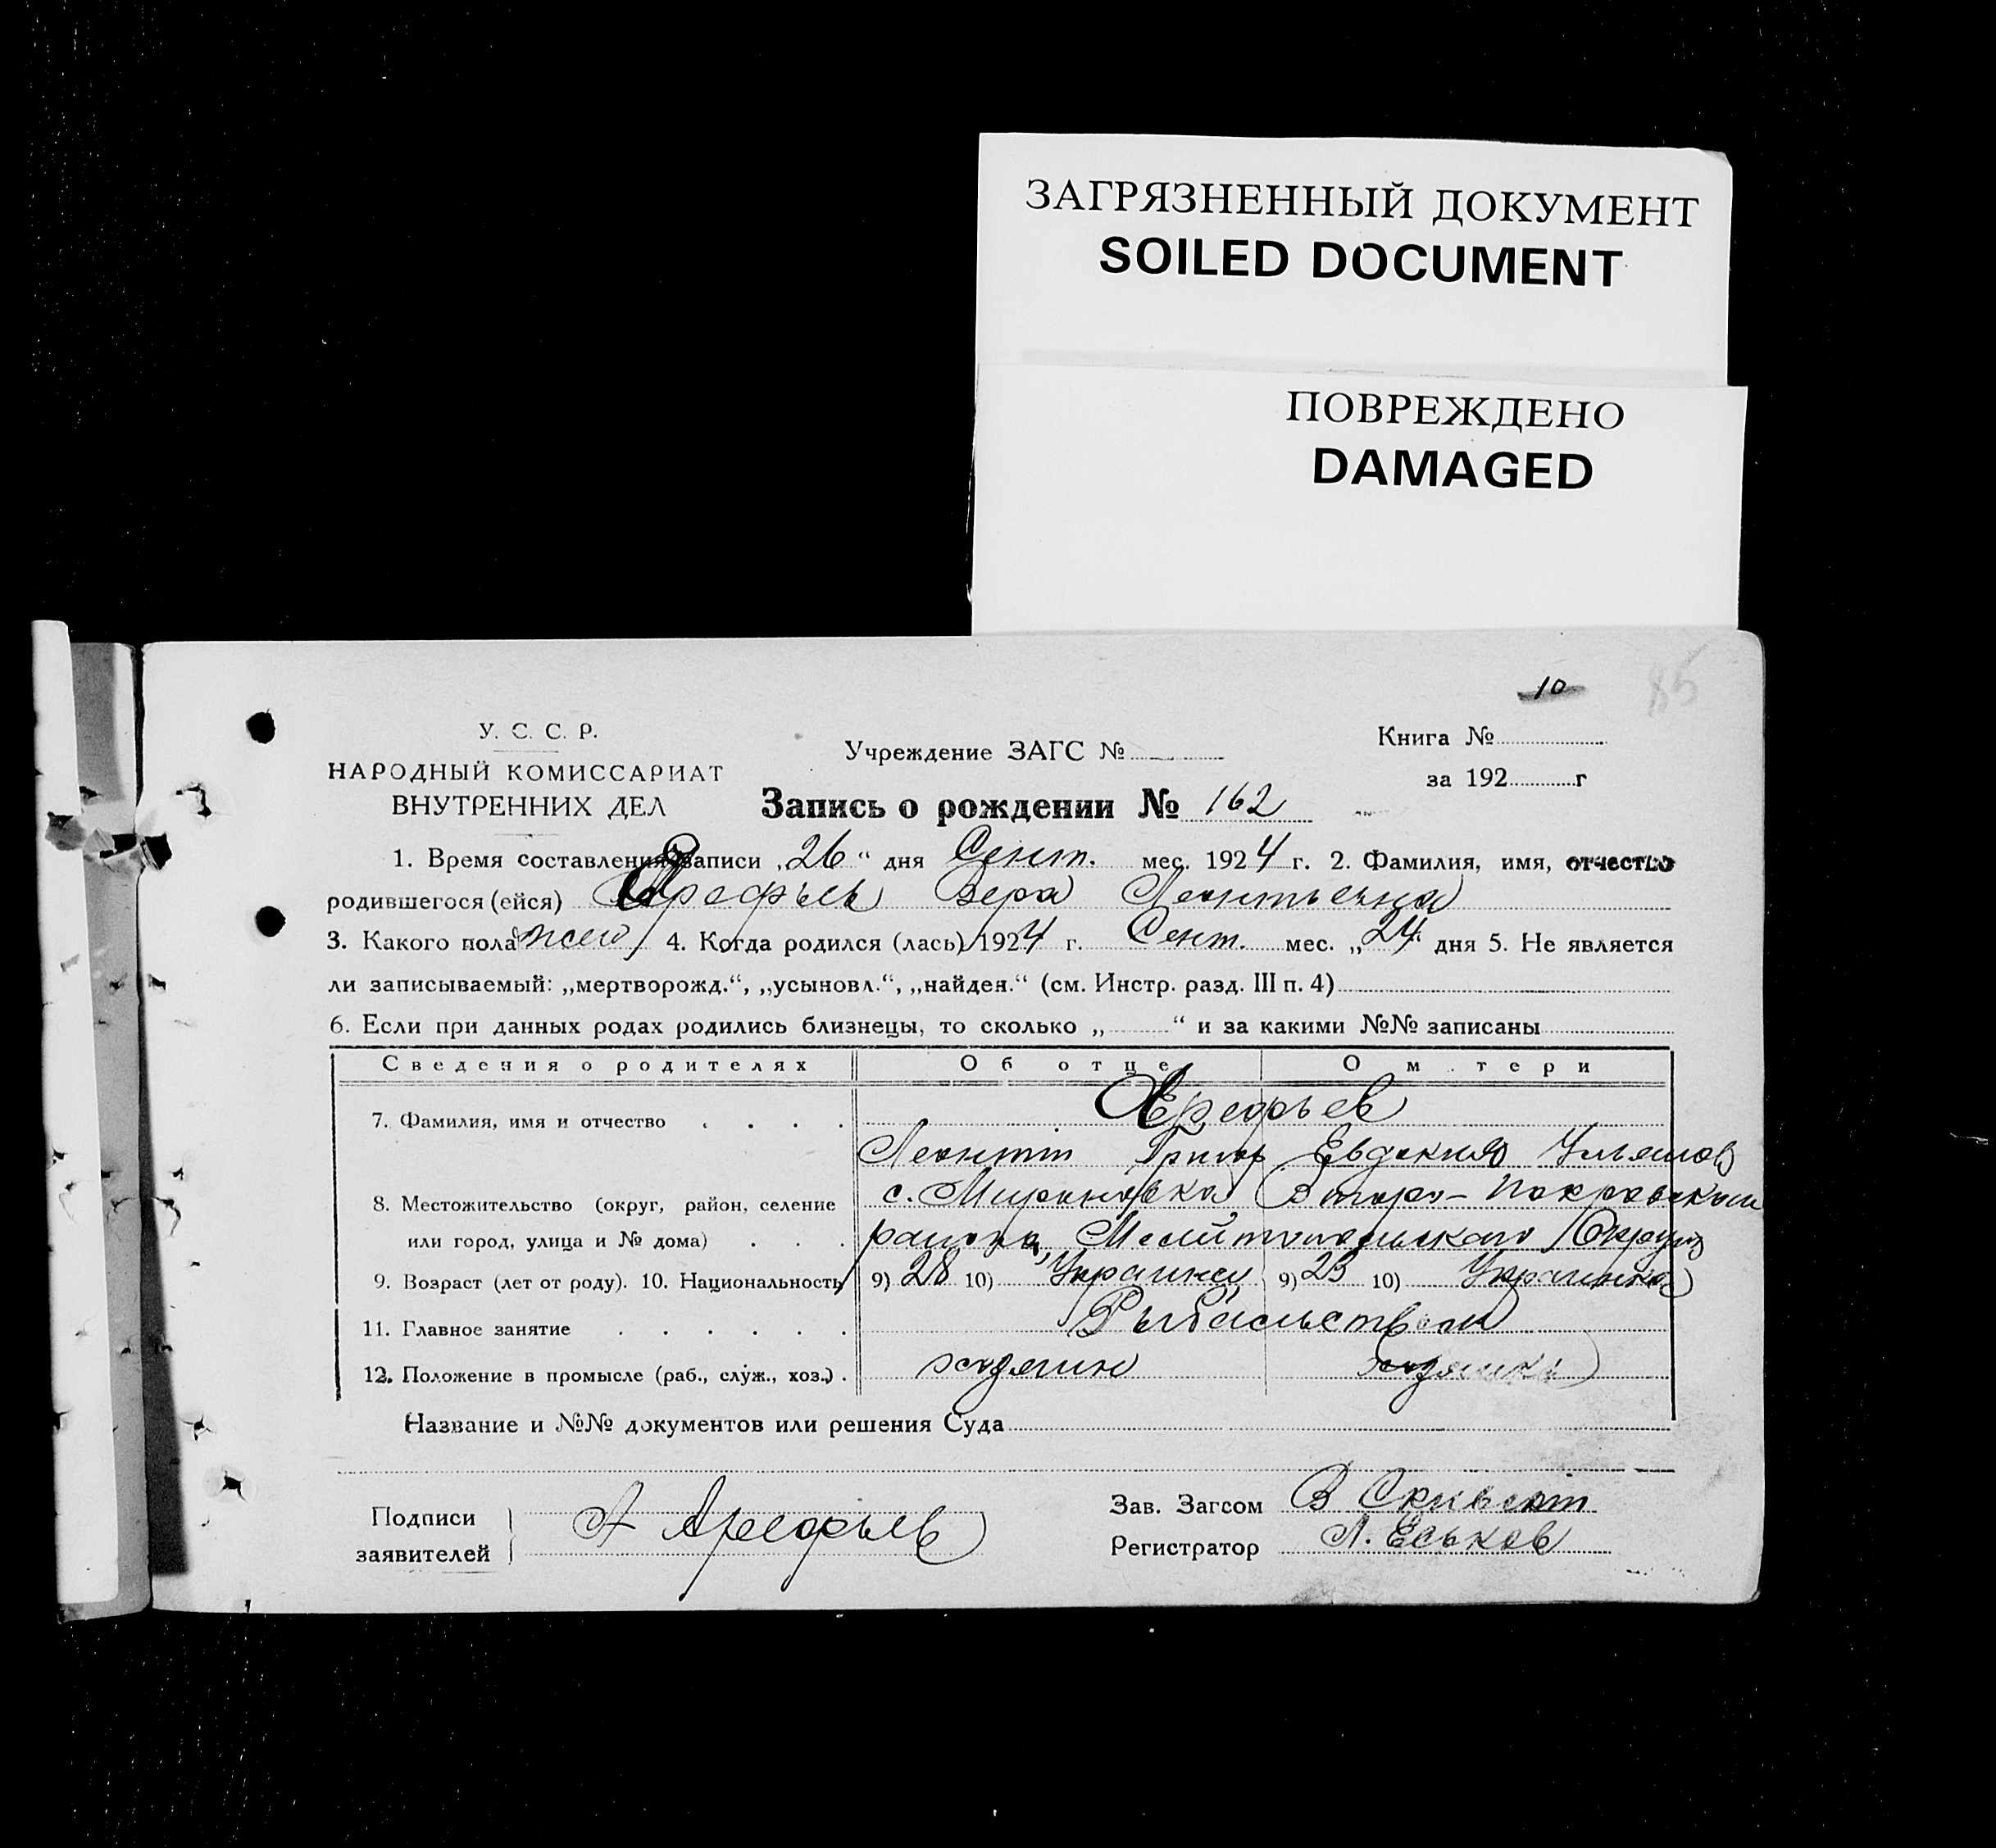 ЗАГРЯЗНЕННЫЙ ДОКУМЕНТ
SOILED DOCUMENT
ПОВРЕЖДЕНО
DAMAGED
10 85
У. С. С. Р.
НАРОДНЫЙ КОМИССАРИАТ
ВНУТРЕННИХ ДЕЛ
Учреждение ЗАГС №
Книга №
за 192 г
Запись о рождении № 162
1. Время составления записи „26“ дня Сент. мес. 1924 г. 2. Фамилия, имя, отчество
родившегося (ейся) Арефьев Вера Леонтьевна
3. Какого пола 4. Когда родился (лась) 1924 г. Сент. мес. „24“ дня 5. Не является
ли записываемый: „мертворожд.“, „усыновл.“, „найден.“ (см. Инстр. разд. III п. 4)
6. Если при данных родах родились близнецы, то сколько „ “ и за какими №№ записаны
Сведения о родителях Об отце О м тери
7. Фамилия, имя и отчество Арефьев
Леонтій Григор Евдокия Ульянов
8. Местожительство (округ, район, селение с. Мироновка Второ-Покровском
или город, улица и № дома) района, Мелитопольскаго Округа
9. Возраст (лет от роду). 10. Национальность 9) 28 10) Украинец 9) 23 10) Украинка
11. Главное занятие
12. Положение в промысле (раб., служ., хоз.) хозяин хозяйка
Название и №№ документов или решения Суда
Подписи
заявителей
А Арефьев
Зав. Загсом В
Регистратор Л. Еськов